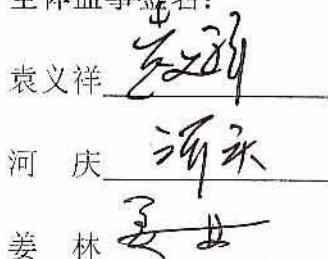 全体监事签名：
袁义祥 袁义祥
河 庆 河庆
姜 林 姜林